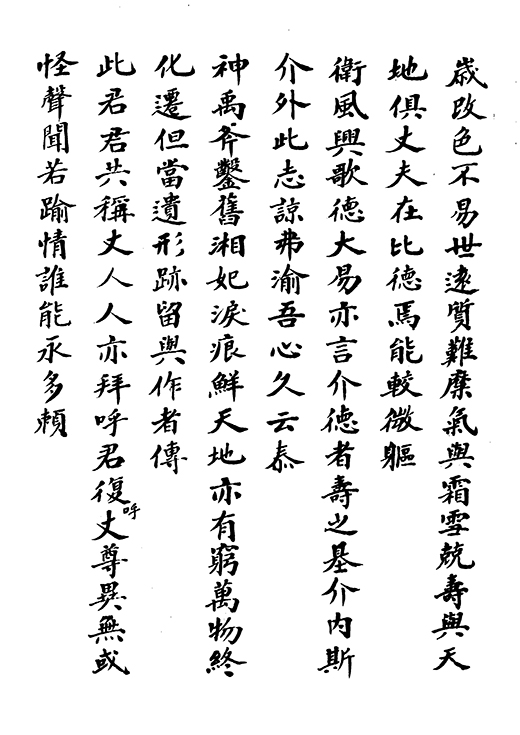 歲改色不易世遠質難糜氣與霜雪兢壽與天
地俱丈夫在比德焉能較微軀
衛風興歌德大易亦言介德者壽之基介內斯
介外此志諒弗渝吾心久云泰
神禹斧鑿舊湘妃淚痕鮮天地亦有窮萬物終
化遷但當遺形跡留與作者傳
此君君共稱丈人人亦拜呼君復呼丈尊異無或
怪聲聞若踰情誰能永多賴